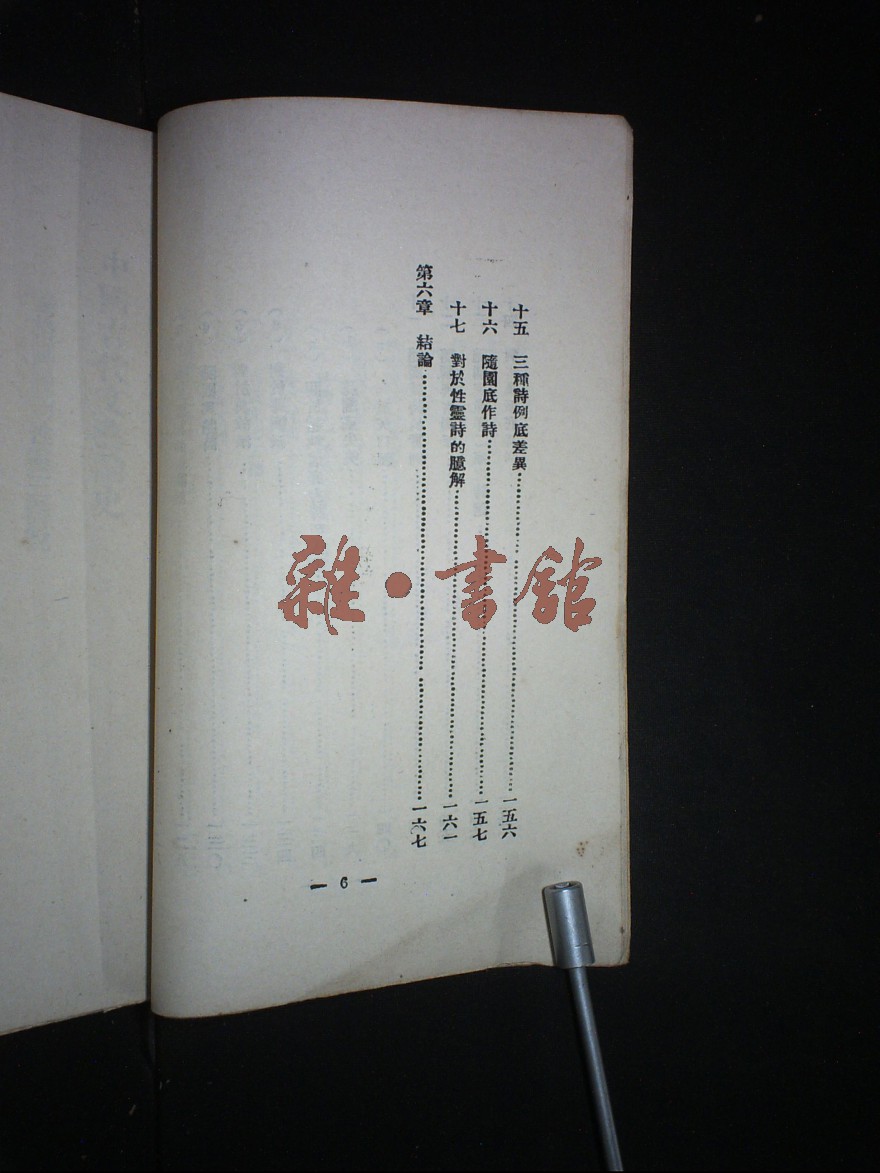 十五　三種詩例底差異……一五六
十六　隨園底作詩……一五七
十七　對於性靈詩的臆解……一六一
第六章　結論……一六七
— 6 —
雜·書館